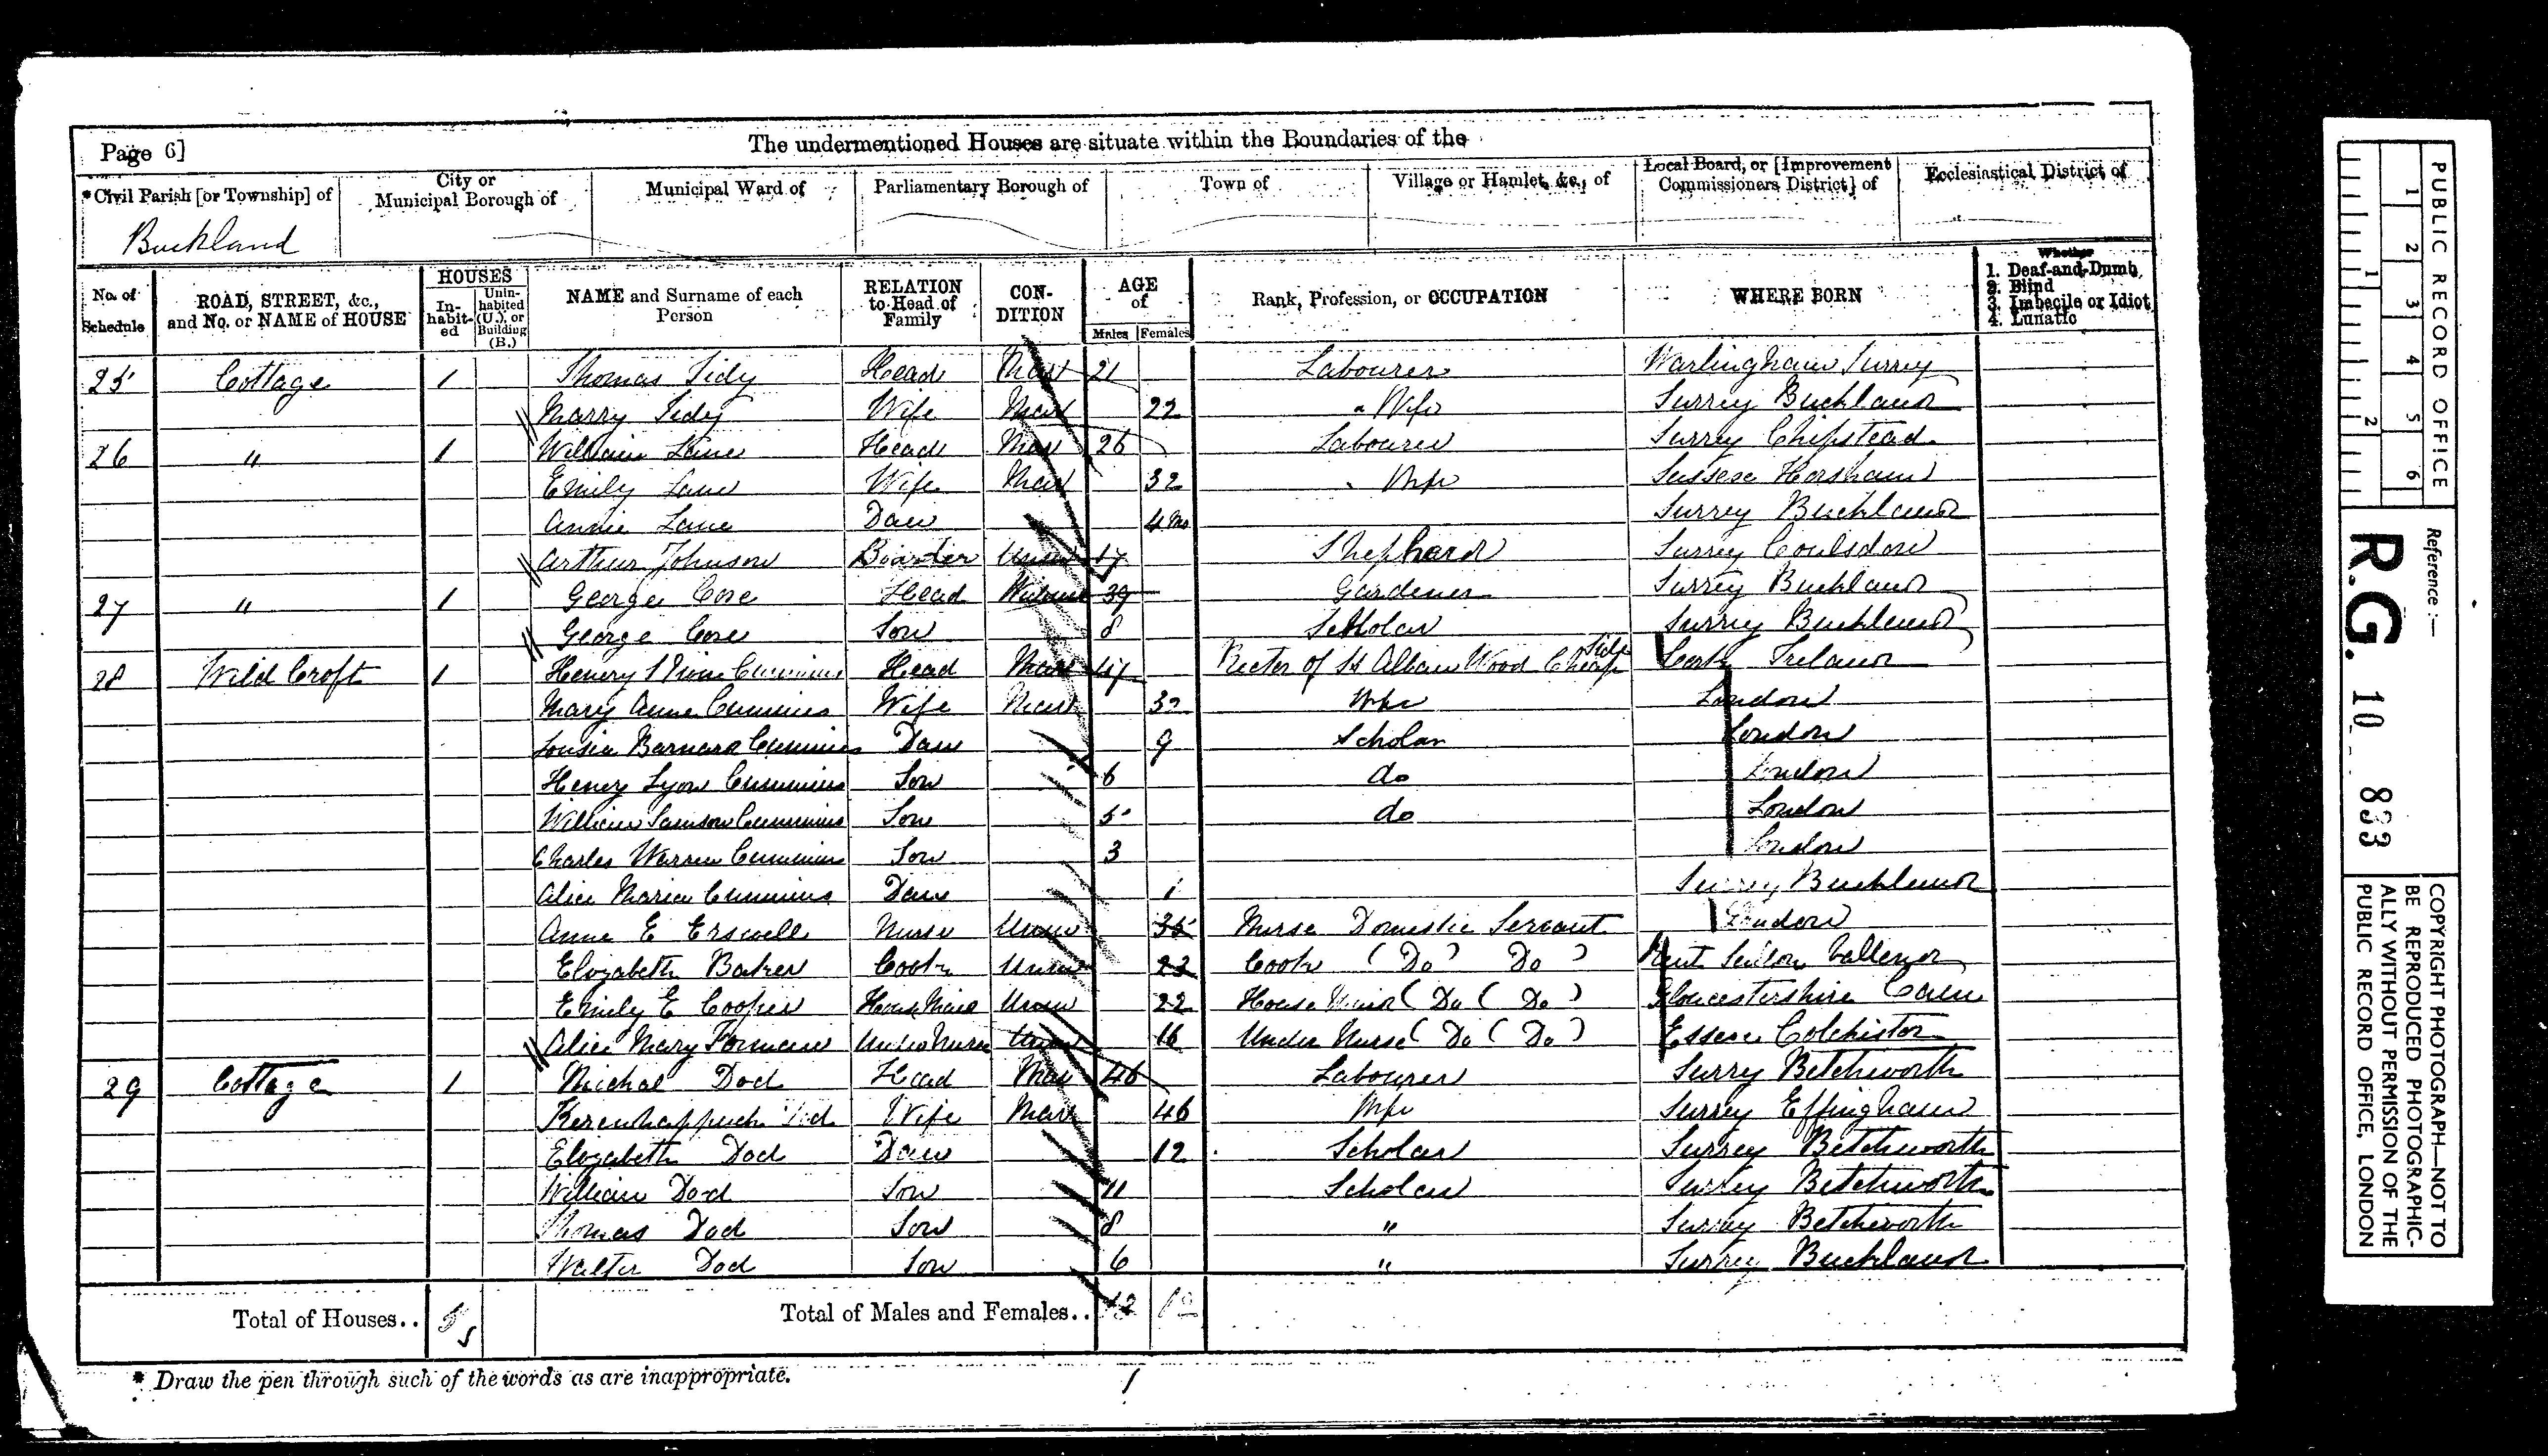 Page 6]
The undermentioned Houses are situate within the Boundaries of the
*Civil Parish [or Township] of
City or Municipal Borough of
Municipal Ward of
Parliamentary Borough of
Town of
Village or Hamlet, &c., of
Local Board, or [Improvement Commissioners District] of
Ecclesiastical District of
Buckland
No. of Schedule
ROAD, STREET, &c., and No. or NAME of HOUSE
HOUSES
In-habit-ed
Unin-habited (U.), or Building (B.)
NAME and Surname of each Person
RELATION to Head of Family
CON-DITION
AGE of
Males Females
Rank, Profession, or OCCUPATION
WHERE BORN
Whether
1. Deaf-and-Dumb
2. Blind
3. Imbecile or Idiot
4. Lunatic
25 Cottage 1 Thomas Tidy Head Mar 21 Labourer Warlingham Surrey
Marry Tidy Wife Mar 22 " Wife Surrey Buckland
26 " 1 William Lane Head Mar 26 Labourer Surrey Chipstead
Emily Lane Wife Mar 32 " Wife Sussex Horsham
Annie Lane Daur 4 Mo Surrey Buckland
Arthur Johnson Boarder Unm 17 Shephard Surrey Coulsdon
27 " 1 George Head 39 Gardener Surrey Buckland
George Son 8 Scholar Surrey Buckland
28 Wild Croft 1 Henery Cummins Head Mar Rector of St Alban Wood Cork Ireland
Mary Anne Cummins Wife Mar 32 Wife London
Lousia Barnard Cummins Daur 9 Scholar London
Henry Lyon Cummins Son 6 do London
William Samson Cummins Son 5 do London
Charles Warren Cummins Son 3 London
Alice Maria Cummins Daur 1 Surrey Buckland
Anne E Erswell Nurse Unm 35 Nurse Domestic Servant London
Elizabeth Baker Cook Unm 23 Cook (Do) Do) Kent Sutton
Emily E Cooper House Maid Unm 22 House Maid (Do (Do) Gloucestershire
Alice Mary Under Nurse Unm 16 Under Nurse (Do (Do) Essex Colchister
29 Cottage 1 Michal Dod Head Mar 46 Labourer Surry Betchworth
Kerenhappuch Dod Wife Mar 46 Wife Surrey Effingham
Elizabeth Dod Daur 12 Scholar Surrey Betchworth
William Dod Son 11 Scholar Surrey Betchworth
Thomas Dod Son 8 " Surrey Betchworth
Walter Dod Son 6 " Surrey Buckland
Total of Houses.. 5
Total of Males and Females.. 12
* Draw the pen through such of the words as are inappropriate.
PUBLIC RECORD OFFICE
1 2 3 4 5 6
1 2
Reference :—
R.G. 10 833
COPYRIGHT PHOTOGRAPH—NOT TO
BE REPRODUCED PHOTOGRAPHIC-
ALLY WITHOUT PERMISSION OF THE
PUBLIC RECORD OFFICE, LONDON